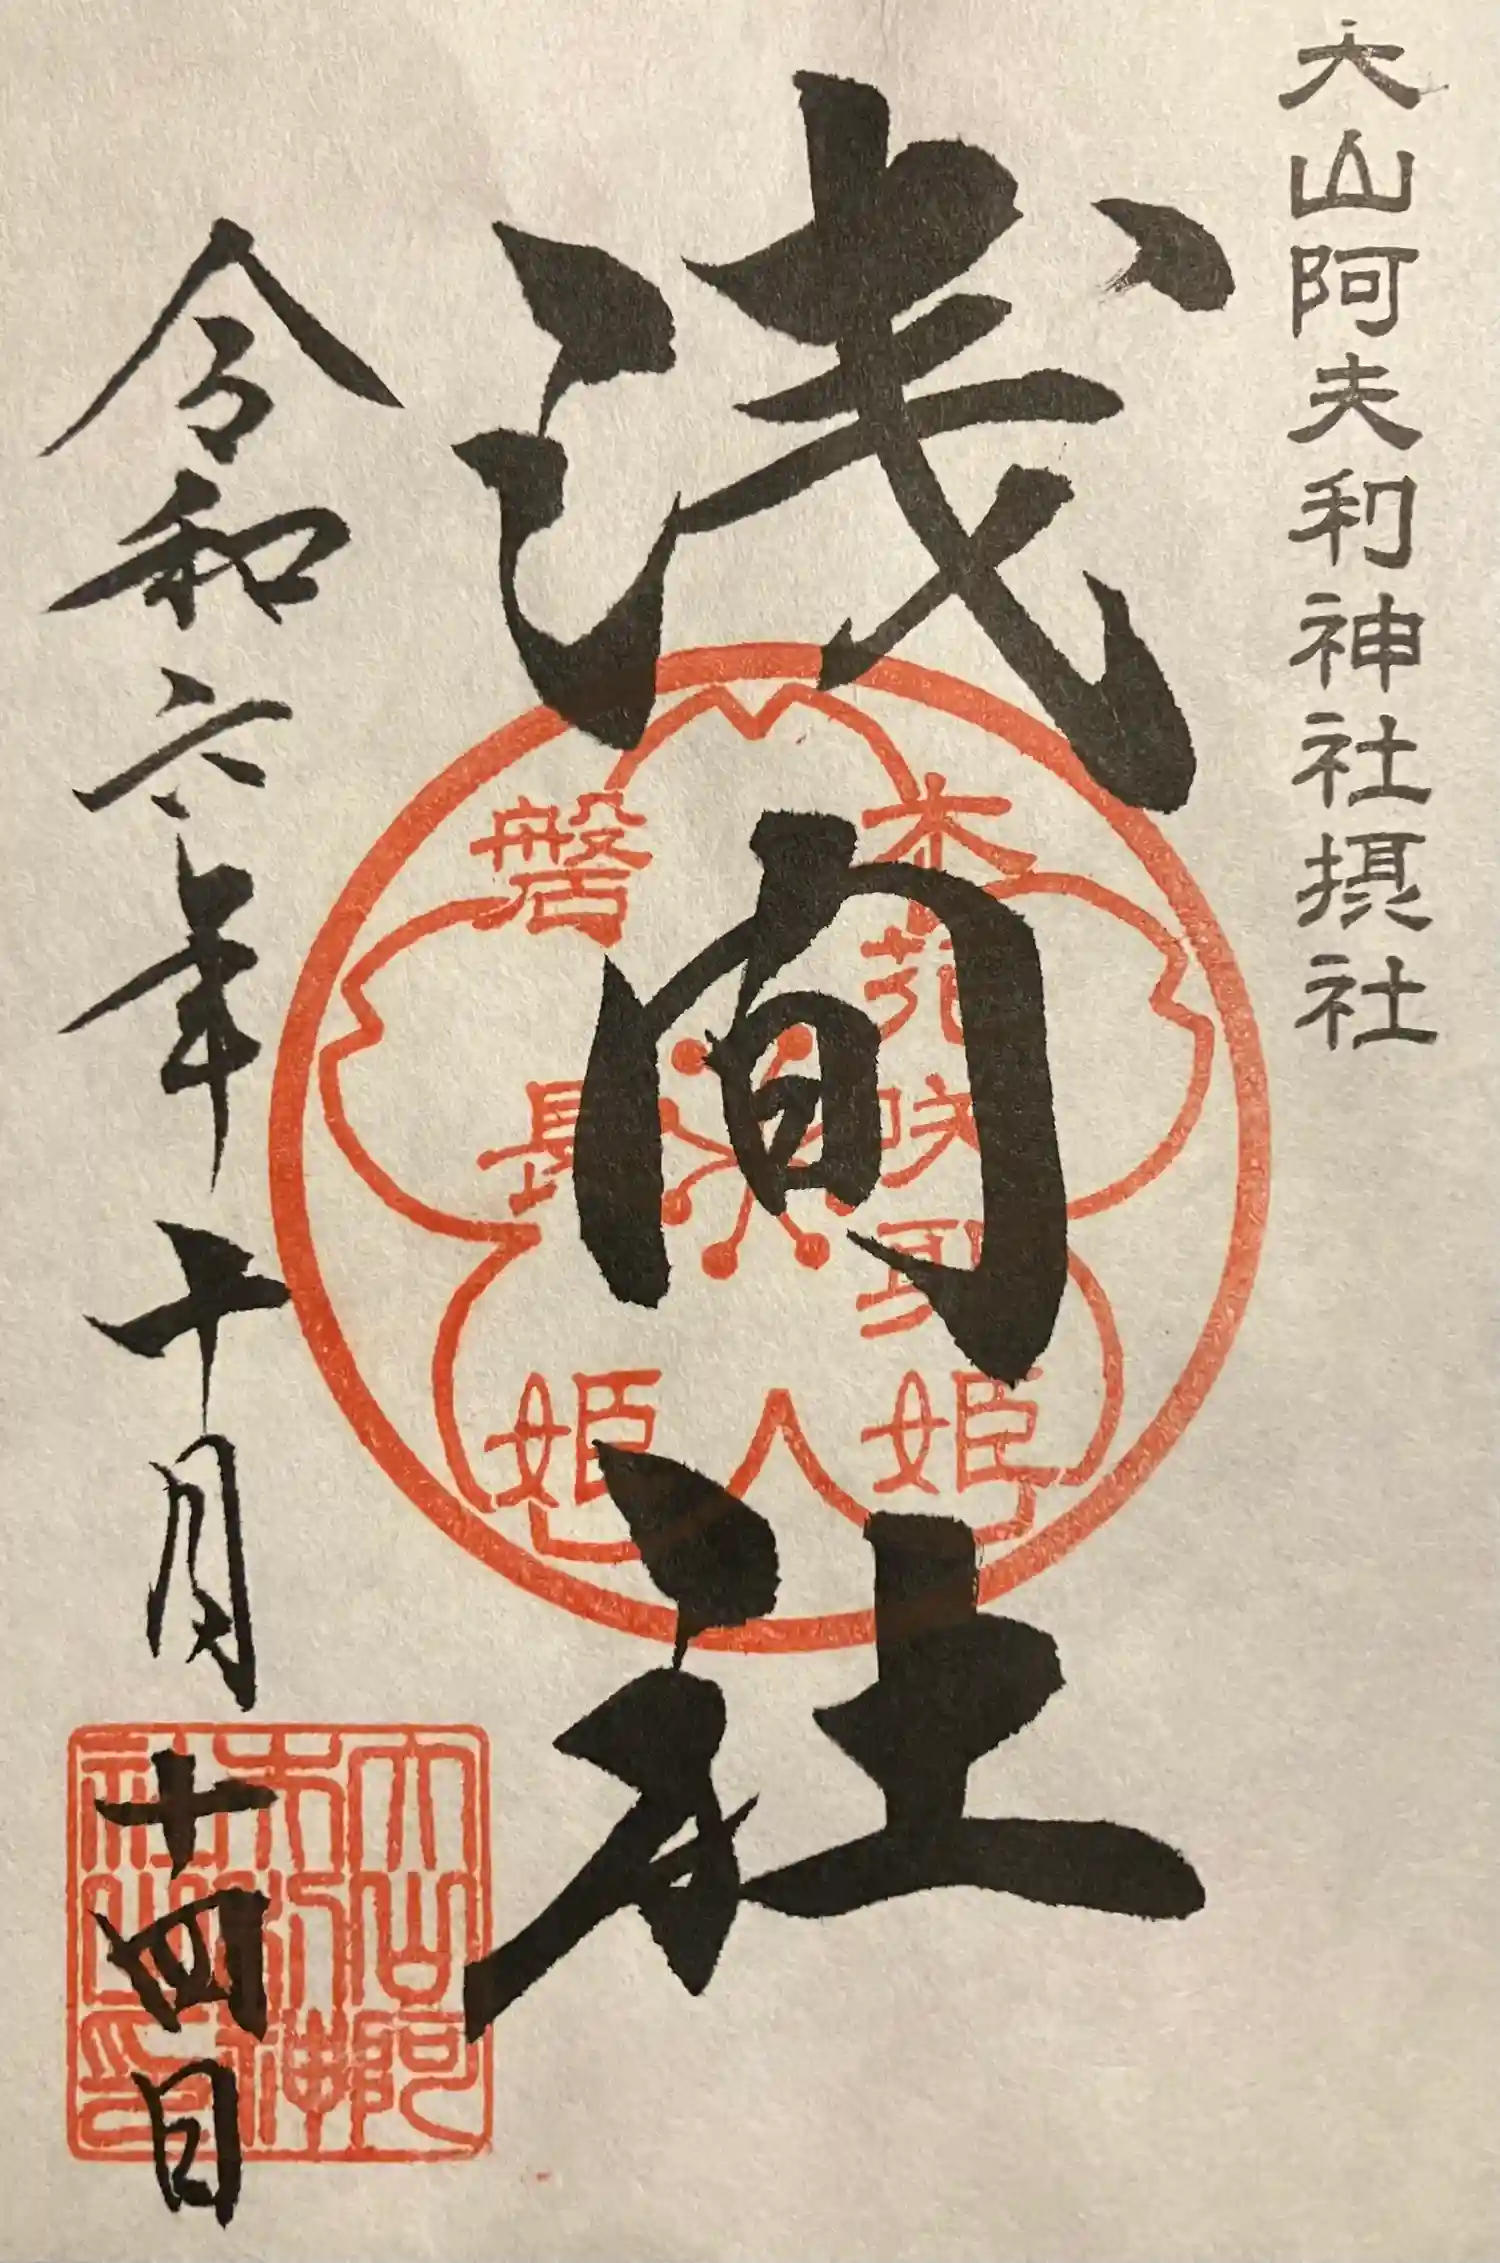 大山阿夫利神社摂社
浅间社
木花咲耶姫
磐長姫
令和六年十月十四日
大山阿
夫利神
社之印